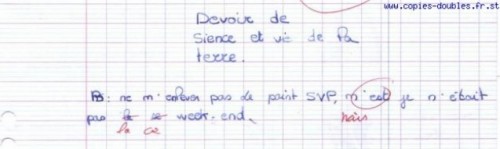 www.copies-doubles.fr.st
Devoir de
Sience et vie de la
terre.
PS: ne m'enlever pas de point SVP, m'est je n'était
pas week-end.
mais
le ce